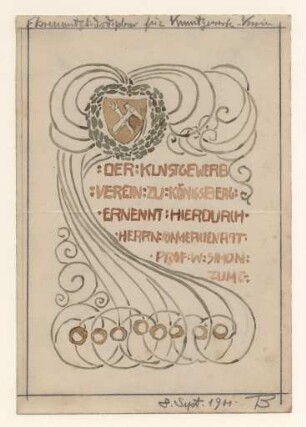 Ehrenmitgliedsdiplom für Kunstgewerbe-Verein
:DER:KUNSTGEWERB
:VEREIN:ZU:KÖNIGSBERG:
·ERNENNT:HIERDURCH·
·HERRN:
·PROF·W·SIMON:
ZUM
8. Sept. 1911. B